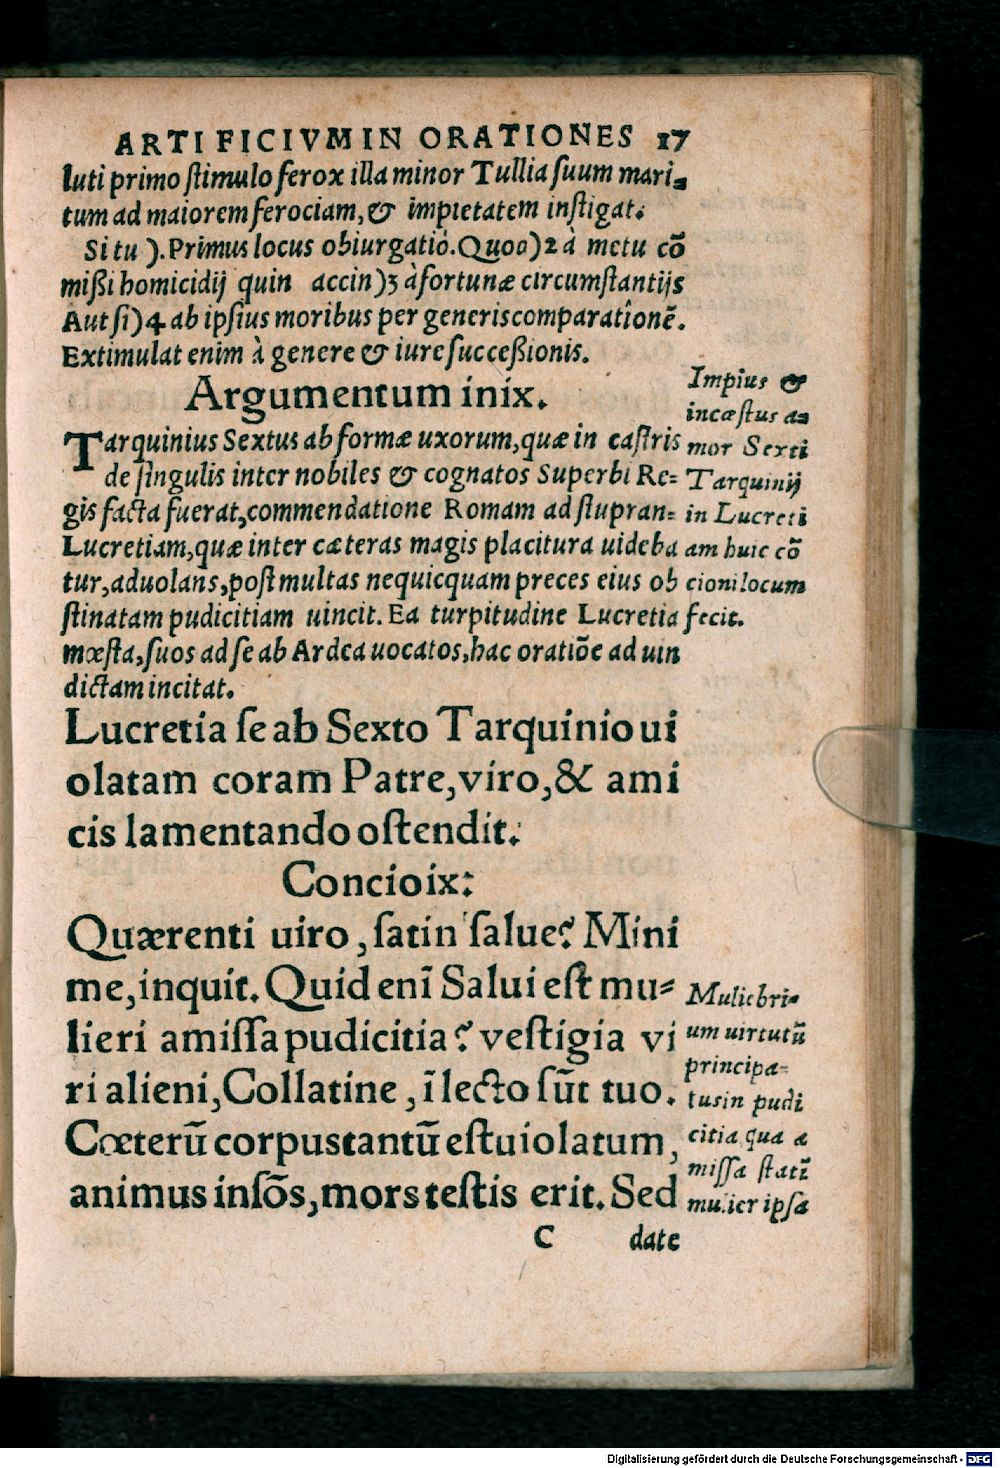 ARTIFICIVM IN ORATIONES 17
luti primo stimulo ferox illa minor Tullia suum mari-
tum ad maiorem ferociam, & impietatem instigat.
Si tu ). Primus locus obiurgatiõ. Quod )2 à metu cõ
mißi homicidij quin accin )3 à fortunæ circumstantijs
Aut si )4 ab ipsius moribus per generis comparationẽ.
Extimulat enim à genere & iure succeßionis.
Argumentum inix.
Tarquinius Sextus ab formæ uxorum, quæ in castris
de singulis inter nobiles & cognatos Superbi Re=
gis facta fuerat, commendatione Romam ad stupran=
Lucretiam, quæ inter cæteras magis placitura uideba
tur, aduolans, post multas nequicquam preces eius ob
stinatam pudicitiam uincit. Ea turpitudine Lucretia
mœsta, suos ad se ab Ardea uocatos, hac oratiõe ad uin
dictam incitat.
Impius &
incæstus a=
mor Sexti
Tarquinij
in Lucreti
am huic cõ
cioni locum
fecit.
Lucretia se ab Sexto Tarquinio ui
olatam coram Patre, viro, & ami
cis lamentando ostendit.
Concio ix:
Quærenti uiro, satin' salue? Mini
me, inquit. Quid enĩ Salui est mu=
lieri amissa pudicitia? vestigia vi
ri alieni, Collatine, ĩ lecto sũt tuo.
Cœterũ corpus tantũ est uiolatum,
animus insõs, mors testis erit. Sed
Muliebri-
um uirtutũ
principa=
tus in pudi
citia qua a
missa statĩ
mulier ipsa
C date
Digitalisierung gefördert durch die Deutsche Forschungsgemeinschaft - DFG